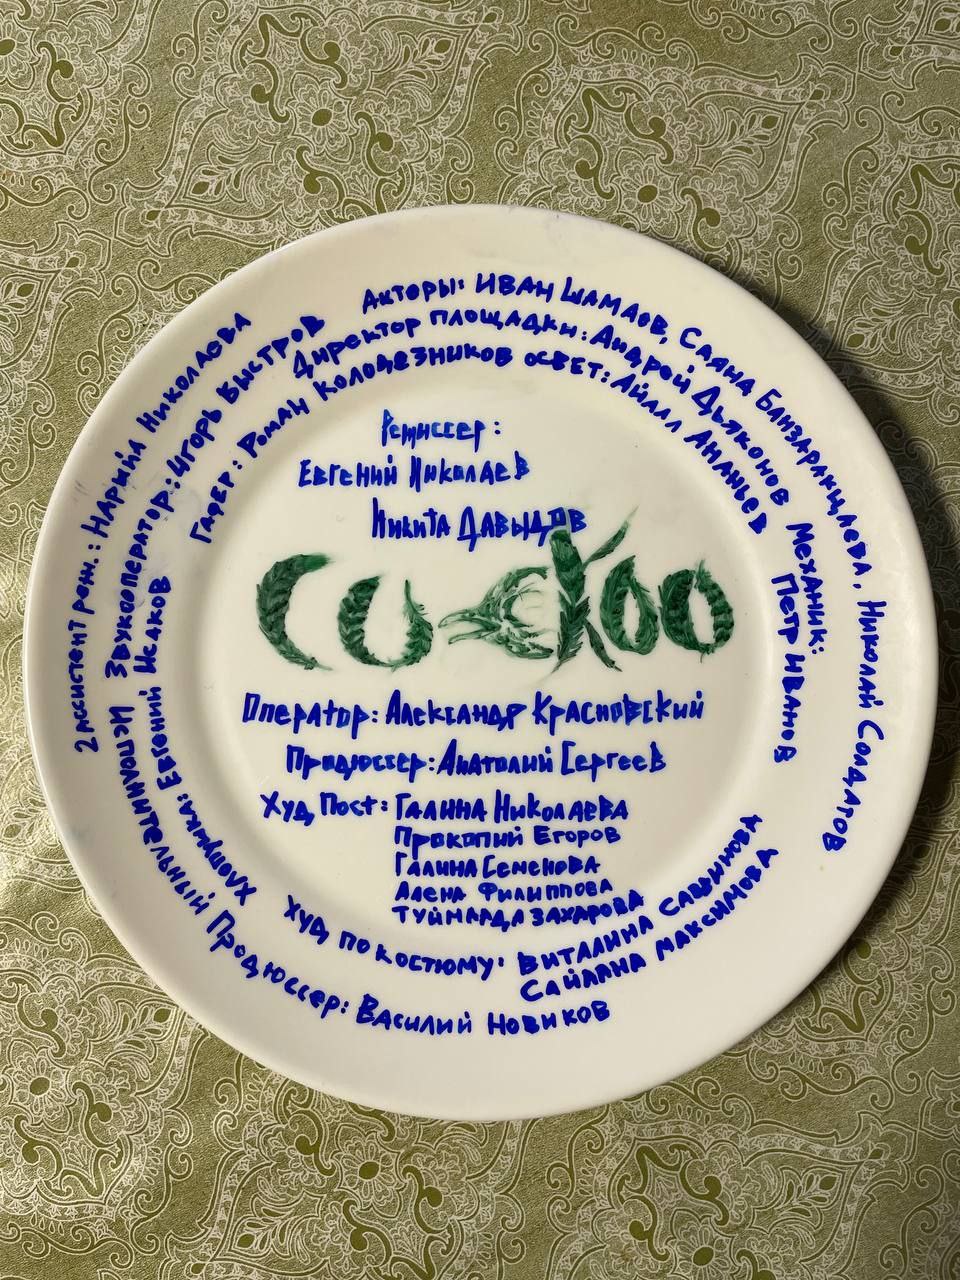 Акторы: Иван Шамаов, Саяна Банзаракцаева, Николай Солдатов
Директор площадки: Андрей Дьяконов Механик: Петр Иванов
Гафер: Роман Колодезников освет: Айалл Ананьев
2 ассистент реж.: Нарыйа Николаева
Звукооператор: Игорь Быстров
Режиссер:
Евгений Николаев
Никита Давыдов
Cuckoo
Оператор: Александр Красновский
Продюссер: Анатолий Сергеев
Худ Пост: Галина Николаева
Прокопий Егоров
Галина Семенова
Алена Филиппова
Туймаада Захарова
Худ по костюму: Виталина Саввинова
Сайаана Максимова
Хлопушка: Евгений Исаков
Исполнительный Продюссер: Василий Новиков